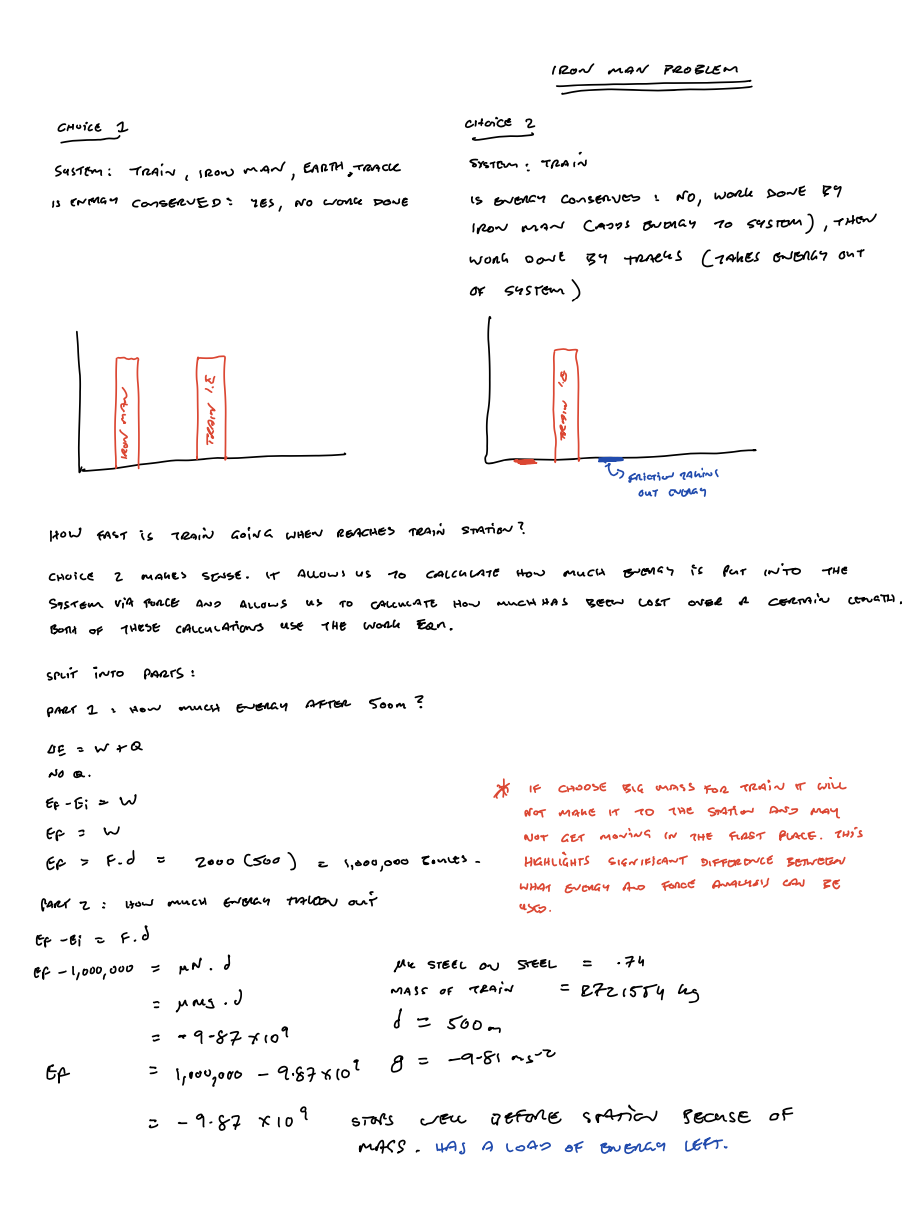 IRON MAN PROBLEM
CHOICE 1
SYSTEM: TRAIN, IRON MAN, EARTH, TRACK
IS ENERGY CONSERVED: YES, NO WORK DONE
CHOICE 2
SYSTEM: TRAIN
IS ENERGY CONSERVED: NO, WORK DONE BY
IRON MAN (ADDS ENERGY TO SYSTEM), THEN
WORK DONE BY TRACKS (TAKES ENERGY OUT
OF SYSTEM)
IRON MAN
TRAIN
TRAIN
FRICTION TAKING
OUT ENERGY
HOW FAST IS TRAIN GOING WHEN REACHES TRAIN STATION?
CHOICE 2 MAKES SENSE. IT ALLOWS US TO CALCULATE HOW MUCH ENERGY IS PUT INTO THE
SYSTEM VIA FORCE AND ALLOWS US TO CALCULATE HOW MUCH HAS BEEN LOST OVER A CERTAIN LENGTH.
BOTH OF THESE CALCULATIONS USE THE WORK EQN.
SPLIT INTO PARTS:
PART 1: HOW MUCH ENERGY AFTER 500m?
ΔE = W + Q
NO Q.
Ef - Ei = W
Ef = W
Ef = F.d = 2000 (500) = 1,000,000 JOULES.
* IF CHOOSE BIG MASS FOR TRAIN IT WILL
NOT MAKE IT TO THE STATION AND MAY
NOT GET MOVING IN THE FIRST PLACE. THIS
HIGHLIGHTS SIGNIFICANT DIFFERENCE BETWEEN
WHAT ENERGY AND FORCE ANALYSIS CAN BE
USED.
PART 2: HOW MUCH ENERGY TAKEN OUT
Ef - Ei = F.d
Ef - 1,000,000 = μN.d
= μmg.d
= -9.87 x 10^9
Ef = 1,000,000 - 9.87 x 10^9
= -9.87 x 10^9
μk STEEL ON STEEL = .74
MASS OF TRAIN = 2721554 kg
d = 500m
g = -9.81 ms^-2
STOPS WELL BEFORE STATION BECUSE OF
MASS. HAS A LOAD OF ENERGY LEFT.